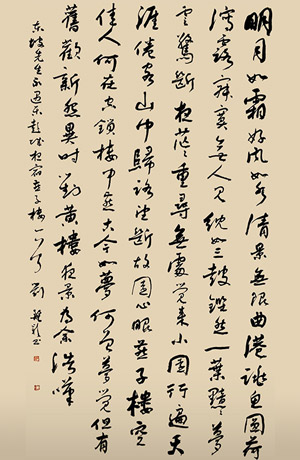 明月如霜好風如水清景無限曲港跳魚圓荷
瀉露寂寞無人見紞如三鼓鏗然一葉黯黯夢
雲驚斷夜茫茫重尋無處覺來小園行遍天
涯倦客山中歸路望斷故園心眼燕子樓空
佳人何在空鎖樓中燕古今如夢何曾夢覺但有
舊歡新怨異時對黃樓夜景為余浩嘆
東坡先生永遇樂彭城夜宿燕子樓一首 劉 書